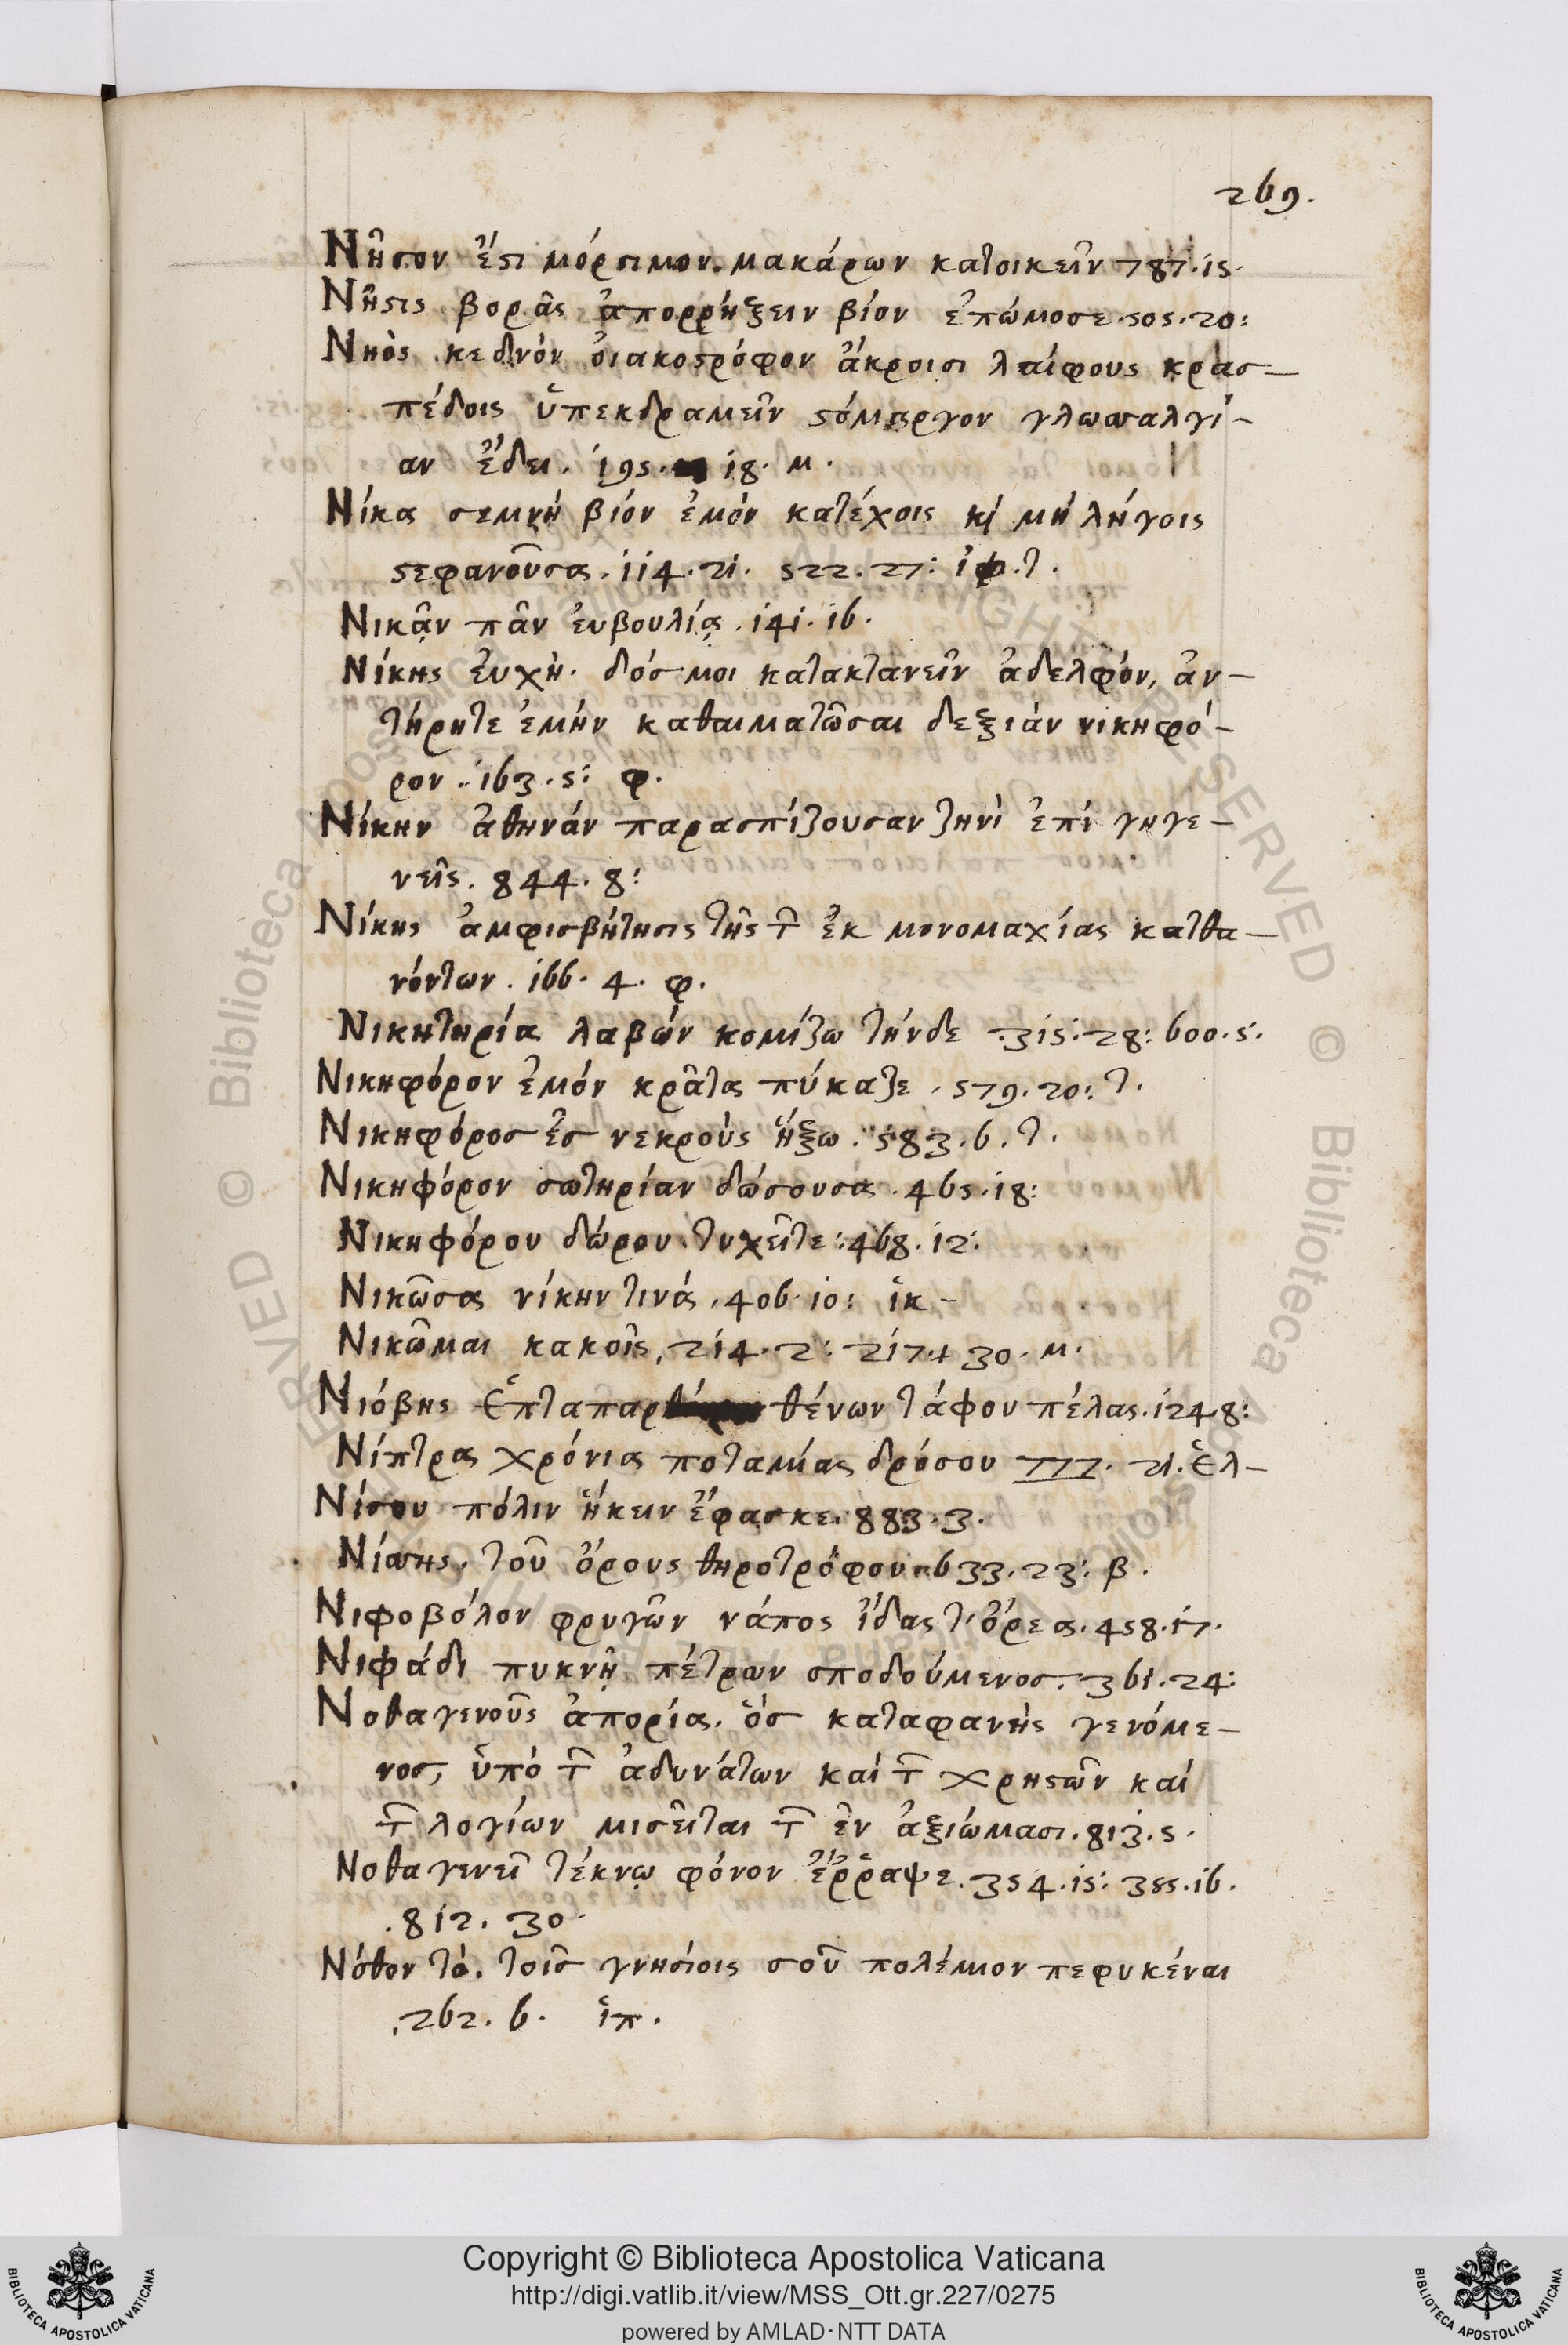 269.
Νῆσον ἔστι μόρσιμον. μακάρων κατοικεῖν 787.15.
Νῆστις βορᾶς ἀπορρήξειν βίον ἐπώμοσε. 505. 20:
Νηὸς κεδνόν ὀιακοστρόφον ἄκροισι λαίφους κρασ-
πέδοις ὑπεκδραμεῖν στόμαργον γλωσσαλγί-
αν ἔδει. 195. 18. μ.
Νίκα σεμνή βίον ἐμόν κατέχοις κὶ μή λήγοις
στεφανοῦσα. 114. 21. 522. 27: ἰφ. τ.
Νικᾷν πᾶν ἐυβουλίᾳ. 141. 16.
Νίκης ἐυχὴ. δός μοι κατακτανεῖν ἀδελφόν, ἀν-
τήρητε ἐμήν καθαιματῶσαι δεξιάν νικηφό-
ρον. 163. 5: φ.
Νίκην ἀθηνάν παρασπίζουσαν ζηνὶ ἐπί γηγε-
νεῖς. 844. 8:
Νίκης ἀμφισβήτησις τῆς τ̑ ἐκ μονομαχίας κατθα-
νόντων. 166. 4. φ.
Νικητηρία λαβών κομίζω τήνδε 315. 28: 600. 5.
Νικηφόρον ἐμόν κρᾶτα πύκαζε. 579. 20: τ.
Νικηφόρος ἐς νεκρούς ἥξω. 583. 6. τ.
Νικηφόρον σωτηρίαν δώσουσα. 465. 18:
Νικηφόρου δώρου τυχεῖτε: 468. 12:
Νικῶσα νίκην τινά. 406. 10: ἱκ-
Νικῶμαι κακοῖς, 214. 2: 217. 30. μ.
Νιόβης ἑπταπαρθένων τάφου πέλας. 124. 8:
Νίπτρα χρόνια ποταμίας δρόσου 777. 21. Ἑλ-
Νίσου πόλιν ἥκειν ἔφασκε. 883. 3.
Νίσσης, τοῦ ὄρους θηροτρόφου 633. 23: β.
Νιφοβόλον φρυγῶν νάπος ἴδας τ' ὄρεα. 458. 17.
Νιφάδι πυκνῇ πέτρων σποδούμενος. 361. 24:
Νοθαγενοῦς ἀπορία. ὅς καταφανὴς γενόμε-
νος, ὑπό τ̑ ἀδυνάτων καί τ̑ χρηστῶν καί
τ̑ λογίων μισεῖται τ̑ ἐν ἀξιώμασι. 813. 5.
Νοθαγενεῖ τέκνῳ φόνον ἔρραψε. 354. 15: 385. 16.
.812. 30
Νόθον τό. τοῖς γνησίοις σοῦ πολέμιον πεφυκέναι
,262. 6. ἱπ.
Copyright © Biblioteca Apostolica Vaticana
http://digi.vatlib.it/view/MSS_Ott.gr.227/0275
powered by AMLAD·NTT DATA